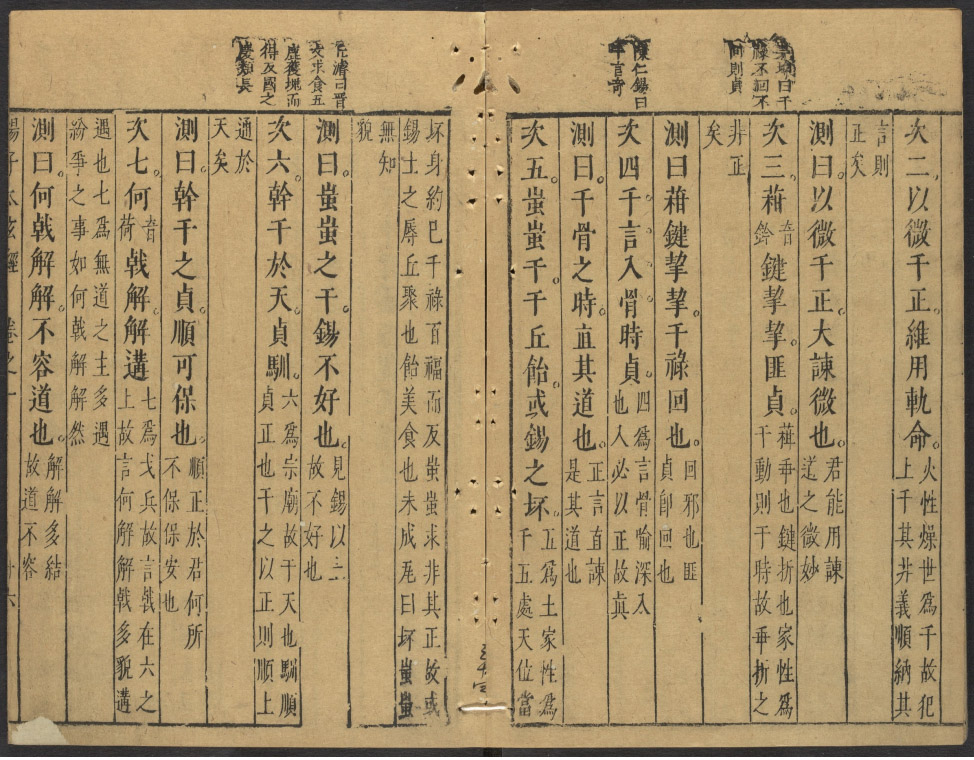 次二以微干正維用軌命火性燥世爲干故犯上干其井義順納其
言則正矣
測曰以微干正大諫微也君能用諫道之微妙
次三葙音鈐鍵挈挈匪貞葙乖也鍵折也家性爲干動則干時故乖折之
非正矣
測曰葙鍵挈挈干祿回也回邪也匪貞卽回也
次四干言入骨時貞四爲言骨喻深入也入必以正故眞
測曰干骨之時直其道也正言直諫是其道也
次五蚩蚩干于丘飴或錫之坏五爲土家性爲干五處天位當
坏身約巳千祿百福而反蚩蚩求非其正故或錫土之辱丘聚也飴美食也未成瓦曰坏蚩蚩
無知貌
測曰蚩蚩之干錫不好也見錫以土故不好也
次六幹干於天貞馴六爲宗廟故干天也馴順貞正也干之以正則順上
通於天矣
測曰幹干之貞順可保也順正於君何所不保保安也
次七何音荷戟解解遘七爲戈兵故言戟在六之上故言何解解戟多貌遘
遇也七爲無道之主多遇紛爭之事如何戟解解然
測曰何戟解解不容道也解解多結故道不容
揚子太玄經 卷之一 十六
曰干祿不回不回則貞
陳仁錫曰干言奇
曰晋文求食五鹿獲塊而得反國之慶